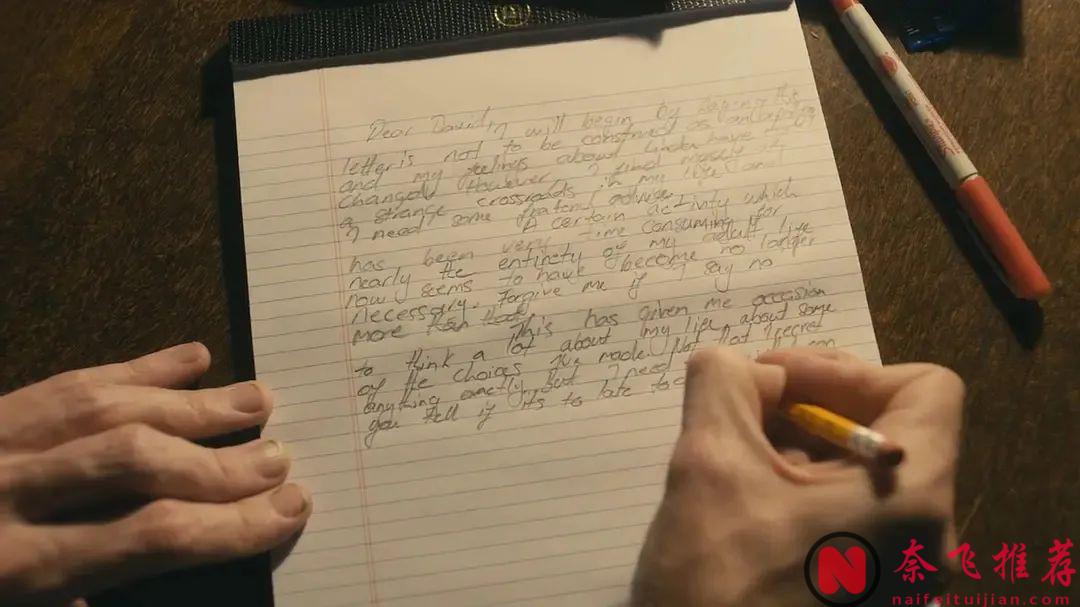 Dear David, I will begin by saying this
letter is not to be construed as an apology
and my feelings about Linda have not
changed However I find myself at
a strange crossroads in my life and
I need some fraternal advise.
A certain activity which
has been very time consuming for
nearly the entirety of my adult life
now seems to have become no longer
necessary. Forgive me if I say no
more than that
This has given me occasion
to think a lot about my life about some
of the choices I've made. Not that I regret
anything exactly, but I need
you tell if its to late to
奈飞推荐
naifeituijian.com